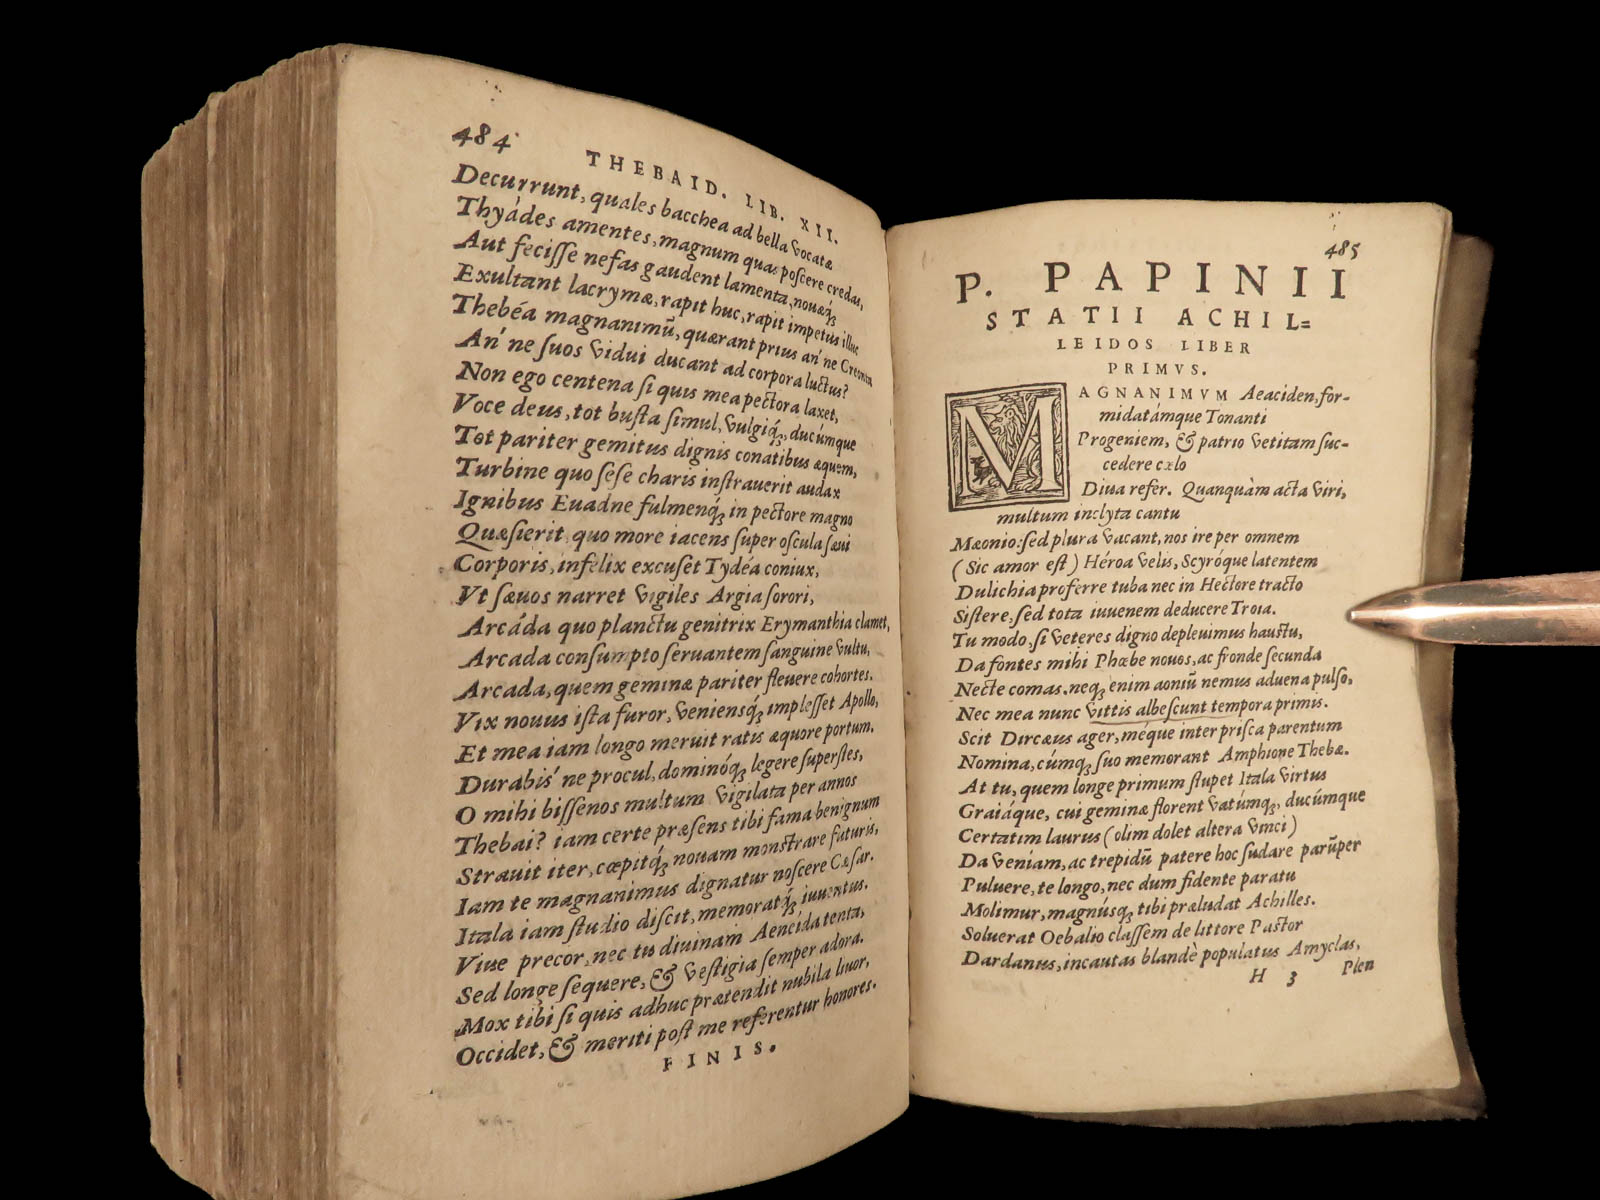 484
THEBAID. LIB. XII.
Decurrunt, quales bacchea ad bella vocatæ
Thyádes amentes, magnum quas poscere credas,
Aut fecisse nefas gaudent lamenta, nouæq́;
Exultant lacrymæ, rapit huc, rapit impetus illuc
Thebéa magnanimū, quærant prius an' ne Creonta
An' ne suos vidui ducant ad corpora luctus?
Non ego centena si quis mea pectora laxet,
Voce deus, tot busta simul, vulgiq́;, ducúmque
Tot pariter gemitus dignis conatibus æquem,
Turbine quo sese charis instrauerit audax
Ignibus Euadne fulmenq́; in pectore magno
Quæsierit, quo more iacens super oscula sæui
Corporis, infelix excuset Tydéa coniux,
Vt sæuos narret vigiles Argia sorori,
Arcáda quo planctu genitrix Erymanthia clamet,
Arcada consumpto seruantem sanguine vultu,
Arcada, quem geminæ pariter fleuere cohortes.
Vix nouus ista furor, veniensq́; implesset Apollo,
Et mea iam longo meruit ratis æquore portum.
Durabis' ne procul, dominóq́; legere superstes,
O mihi bissenos multum vigilata per annos
Thebai? iam certe præsens tibi fama benignum
Strauit iter, cœpitq́; nouam monstrare futuris,
Iam te magnanimus dignatur noscere Cæsar.
Itala iam studio discit, memoratq́; iuuentus.
Viue precor, nec tu diuinam Aeneida tenta,
Sed longe sequere, & vestigia semper adora.
Mox tibi si quis adhuc prætendit nubila liuor,
Occidet, & meriti post me referentur honores.
FINIS.
485
P. PAPINII
STATII ACHIL=
LEIDOS LIBER
PRIMVS.
MAGNANIMVM Aeaciden, for-
midatámque Tonanti
Progeniem, & patrio vetitam suc-
cedere cælo
Diua refer. Quanquàm acta viri,
multum inclyta cantu
Mæonio: sed plura vacant, nos ire per omnem
(Sic amor est) Héroa velis, Scyróque latentem
Dulichia proferre tuba nec in Hectore tracto
Sistere, sed tota iuuenem deducere Troia.
Tu modo, si veteres digno depleuimus haustu,
Da fontes mihi Phœbe nouos, ac fronde secunda
Necte comas. neq; enim aoniū nemus aduena pulso,
Nec mea nunc vittis albescunt tempora primis.
Scit Dircæus ager, méque inter prisca parentum
Nomina, cúmq; suo memorant Amphione Thebæ.
At tu, quem longe primum stupet Itala virtus
Graiáque, cui geminæ florent vatúmq;, ducúmque
Certatim laurus (olim dolet altera vinci)
Da veniam, ac trepidū patere hoc sudare parūper
Puluere, te longo, nec dum fidente paratu
Molimur, magnúsq; tibi præludat Achilles.
Soluerat Oebalio classem de littore Pastor
Dardanus, incautas blandè populatus Amyclas,
H 3 Plen